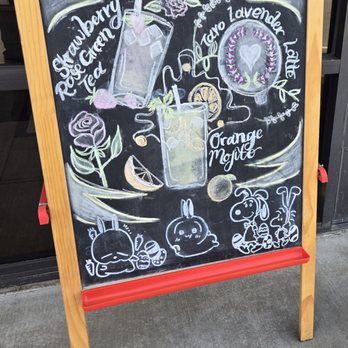 Strawberry
Rose Green
Tea
Taro Lavender Latte
Orange
Mojito